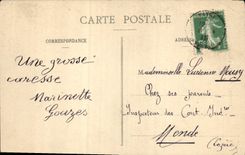 CARTE POSTALE
CORRESPONDANCE
ADRESSE
Une grosse
caresse
Marinette
Gouzes
Mademoiselle Lucienne
Chez ses parents
Inspecteur des Cont. Ind.
Mende
(Lozère)